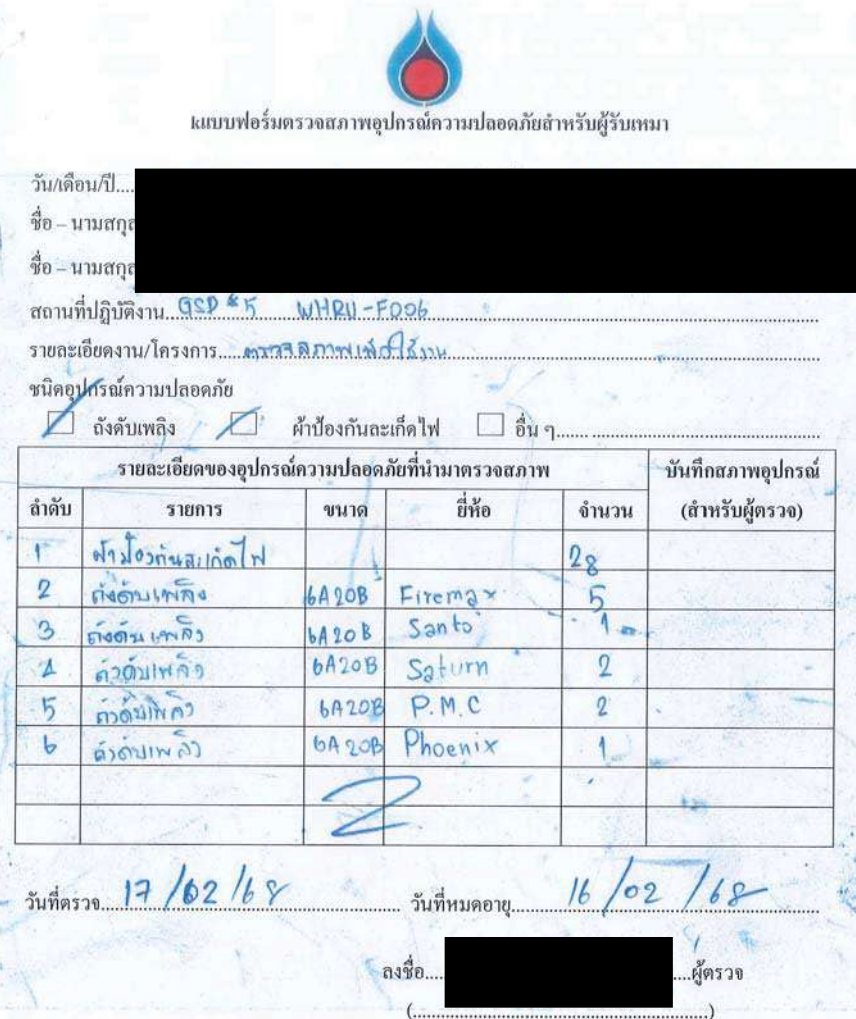 kแบบฟอร์มตรวจสภาพอุปกรณ์ความปลอดภัยสำหรับผู้รับเหมา
วัน/เดือน/ปี....
ชื่อ – นามสกุล
ชื่อ – นามสกุล
สถานที่ปฏิบัติงาน GSP #5 WHRU-F006
รายละเอียดงาน/โครงการ ตรวจสภาพเพื่อใช้งาน
ชนิดอุปกรณ์ความปลอดภัย
ถังดับเพลิง ผ้าป้องกันสะเก็ดไฟ อื่น ๆ
รายละเอียดของอุปกรณ์ความปลอดภัยที่นำมาตรวจสภาพ บันทึกสภาพอุปกรณ์
ลำดับ รายการ ขนาด ยี่ห้อ จำนวน (สำหรับผู้ตรวจ)
1 ผ้าป้องกันสะเก็ดไฟ 28
2 ถังดับเพลิง 6A20B Firemax 5
3 ถังดับเพลิง 6A20B Santo 1
4 ถังดับเพลิง 6A20B Saturn 2
5 ถังดับเพลิง 6A20B P.M.C 2
6 ถังดับเพลิง 6A20B Phoenix 1
วันที่ตรวจ 17/02/68 วันที่หมดอายุ 16/02/68
ลงชื่อ....ผู้ตรวจ
(....)